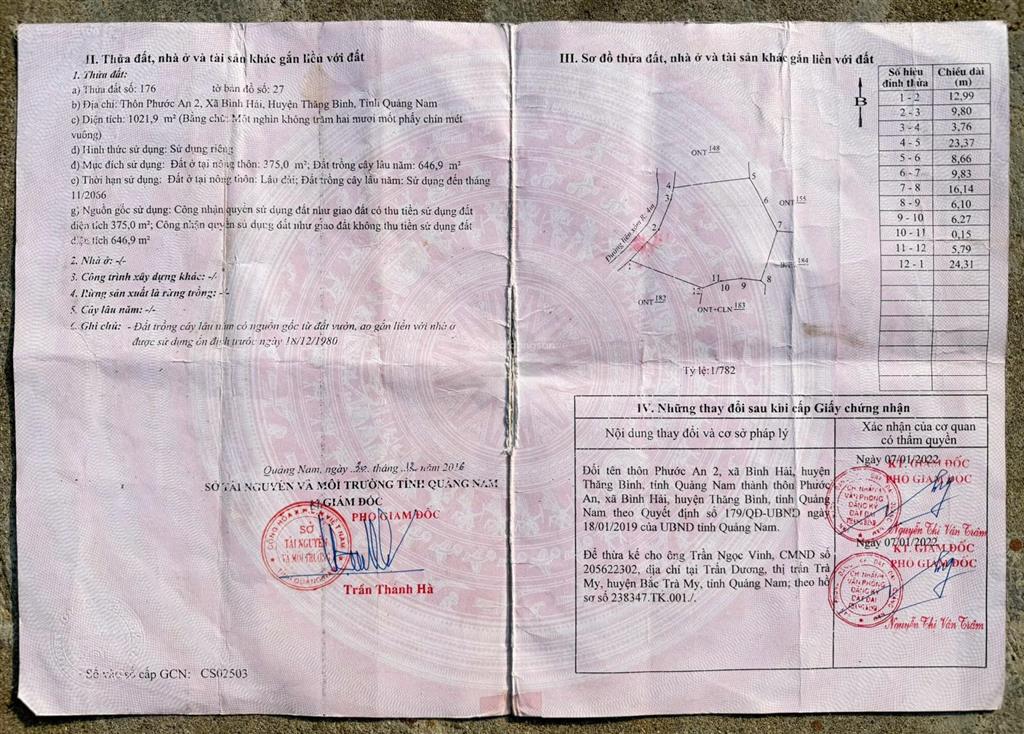 II. Thửa đất, nhà ở và tài sản khác gắn liền với đất
1. Thửa đất:
a) Thửa đất số: 176 tờ bản đồ số: 27
b) Địa chỉ: Thôn Phước An 2, Xã Bình Hải, Huyện Thăng Bình, Tỉnh Quảng Nam
c) Diện tích: 1021,9 m² (Bằng chữ: Một nghìn không trăm hai mươi mốt phẩy chín mét
vuông)
d) Hình thức sử dụng: Sử dụng riêng
đ) Mục đích sử dụng: Đất ở tại nông thôn: 375,0 m²; Đất trồng cây lâu năm: 646,9 m²
e) Thời hạn sử dụng: Đất ở tại nông thôn: Lâu dài; Đất trồng cây lâu năm: Sử dụng đến tháng
11/2066
g) Nguồn gốc sử dụng: Công nhận quyền sử dụng đất như giao đất có thu tiền sử dụng đất
diện tích 375,0 m²; Công nhận quyền sử dụng đất như giao đất không thu tiền sử dụng đất
diện tích 646,9 m²
2. Nhà ở: -/-
3. Công trình xây dựng khác: -/-
4. Rừng sản xuất là rừng trồng: -/-
5. Cây lâu năm: -/-
6. Ghi chú: - Đất trồng cây lâu năm có nguồn gốc từ đất vườn, ao gắn liền với nhà ở
được sử dụng ổn định trước ngày 18/12/1980
Quảng Nam, ngày tháng 12 năm 2016
SỞ TÀI NGUYÊN VÀ MÔI TRƯỜNG TỈNH QUẢNG NAM
KT.GIÁM ĐỐC
PHÓ GIÁM ĐỐC
SỞ
TÀI NGUYÊN
VÀ MÔI TRƯỜNG
Trần Thanh Hà
Số vào sổ cấp GCN: CS02503
III. Sơ đồ thửa đất, nhà ở và tài sản khác gắn liền với đất
B
Số hiệu đỉnh thửa Chiều dài (m)
1 - 2 12,99
2 - 3 9,80
3 - 4 3,76
4 - 5 23,37
5 - 6 8,66
6 - 7 9,83
7 - 8 16,14
8 - 9 6,10
9 - 10 6,27
10 - 11 0,15
11 - 12 5,79
12 - 1 24,31
ONT 148
4
5
3
6
ONT 155
2
7
Đường liên xóm R. 4m
1
184
11
8
12
10
9
ONT 182
ONT+CLN 183
Tỷ lệ:1/782
IV. Những thay đổi sau khi cấp Giấy chứng nhận
Nội dung thay đổi và cơ sở pháp lý
Xác nhận của cơ quan
có thẩm quyền
Đổi tên thôn Phước An 2, xã Bình Hải, huyện
Thăng Bình, tỉnh Quảng Nam thành thôn Phước
An, xã Bình Hải, huyện Thăng Bình, tỉnh Quảng
Nam theo Quyết định số 179/QĐ-UBND ngày
18/01/2019 của UBND tỉnh Quảng Nam.
Ngày 07/01/2022
KT. GIÁM ĐỐC
PHÓ GIÁM ĐỐC
CHI NHÁNH
VĂN PHÒNG
ĐĂNG KÝ
ĐẤT ĐAI
Nguyễn Thị Vân Trâm
Để thừa kế cho ông Trần Ngọc Vinh, CMND số
205622302, địa chỉ tại Trần Dương, thị trấn Trà
My, huyện Bắc Trà My, tỉnh Quảng Nam; theo hồ
sơ số 238347.TK.001./.
Ngày 07/01/2022
KT. GIÁM ĐỐC
PHÓ GIÁM ĐỐC
CHI NHÁNH
VĂN PHÒNG
ĐĂNG KÝ
ĐẤT ĐAI
Nguyễn Thị Vân Trâm